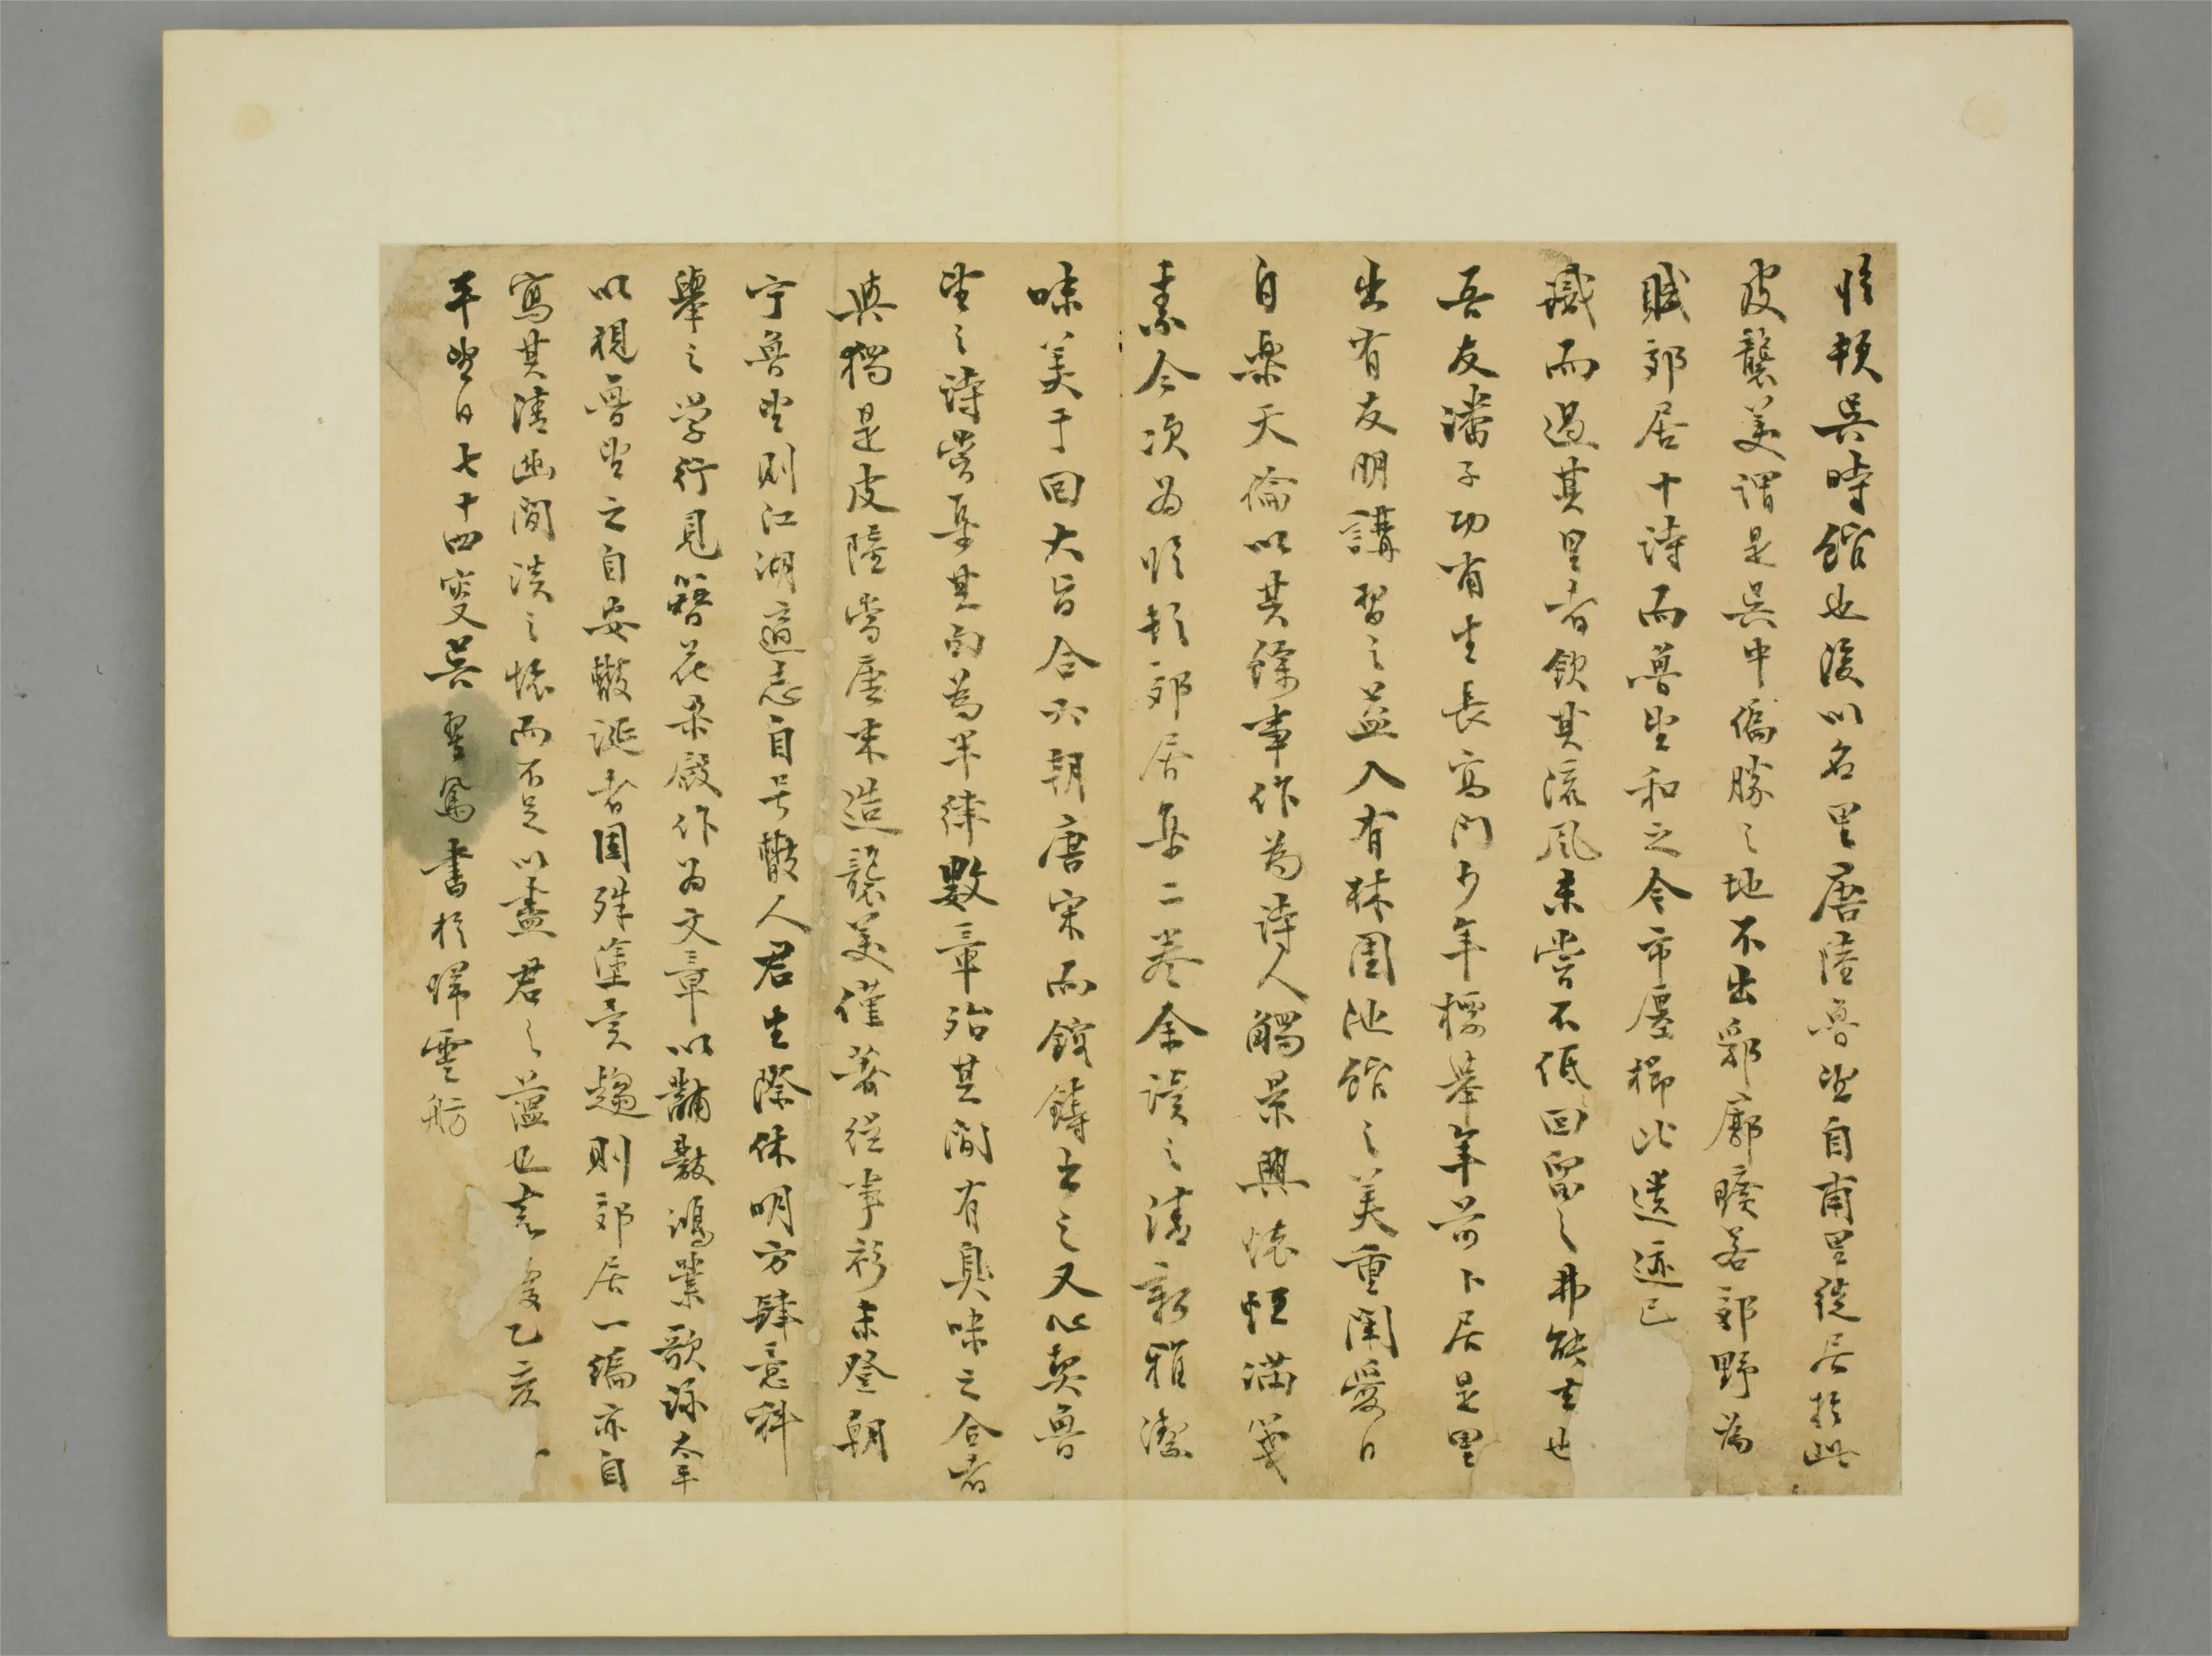 臨頓吳時館也後以名里唐陸魯望自甫里徙居於此
皮襲美謂是吳中偏勝之地不出郛廓曠若郊野為
賦郊居十詩而魯望和之今市廛櫛比遺迹已
湮而過其里者欽其流風未嘗不低回留之弗能去也
吾友潘子功甫生長高門少年標舉年前卜居是里
出有友朋講習之益入有林園池館之美重闈愛日
自樂天倫以其餘事作為詩人觸景興懷恒滿箋
素今次為臨頓郊居集二卷余讀之清新雅潔
味美于回大旨合六朝唐宋而鎔鑄出之又心契魯
望之詩嘗集其句為半律數章殆其間有臭味之合者
與獨是皮陸當唐末造襲美僅著從事衫未登朝
宁魯望則江湖適志自号散人君生際休明方肆意科
舉之学行見簪花榮殿作為文章以黼黻鴻業歌詠太平
以視魯望之自安散誕者固殊塗異趨則郊居一編亦自
寫其清幽閒淡之懷而不足以盡君之蘊也嘉慶乙亥
年望日七十四叟吳翌鳳書於歸雲舫